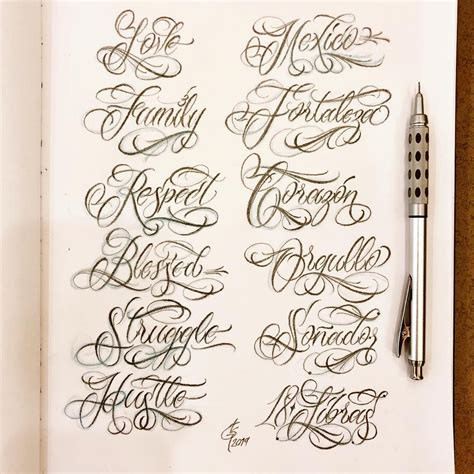 Love
Family
Respect
Blessed
Struggle
Hustle
Mexico
Fortaleza
Corazón
Orgullo
Soñador
18 Libras
2019